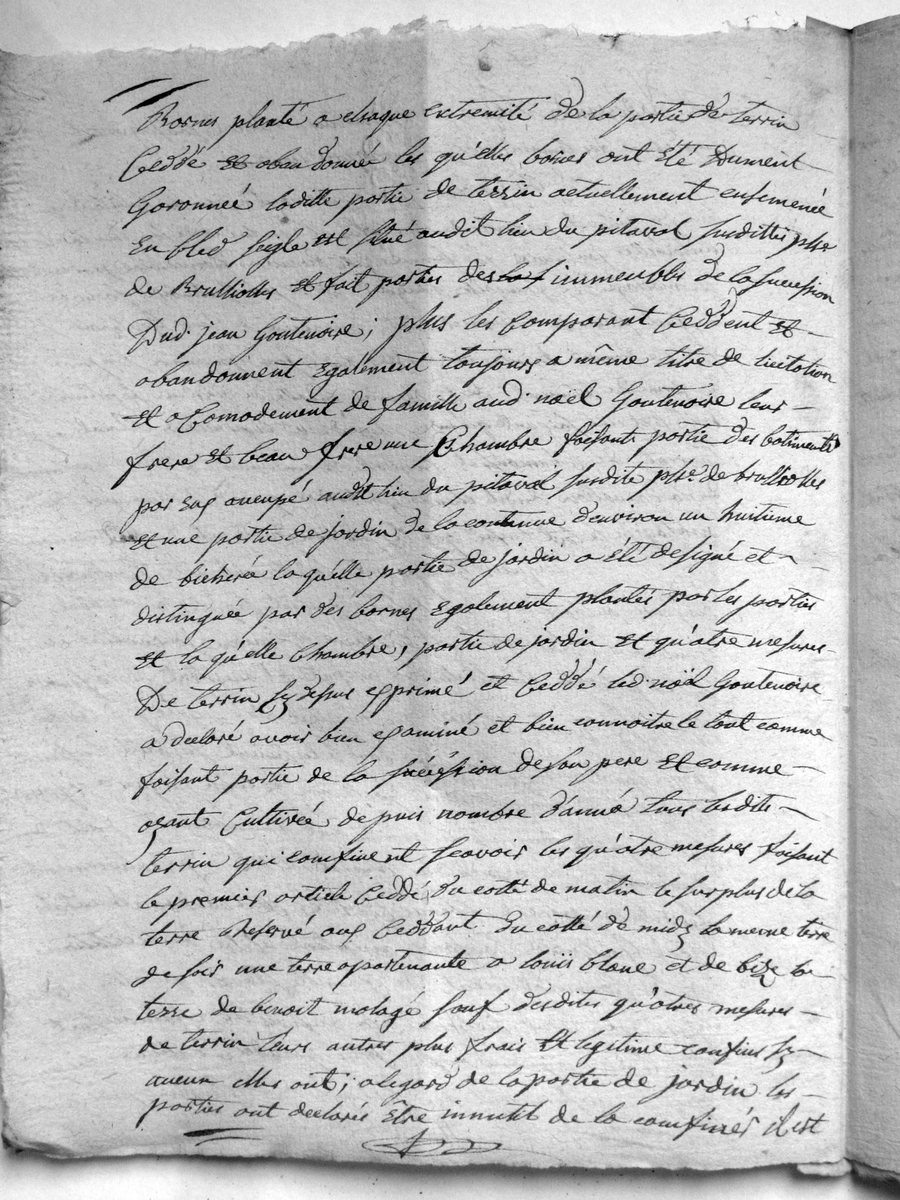 Bornes planté a chaque extremité de la portie de terrin
Ceddé et abandonné les quelles bornes ont été Dument
Garonnée laditte portie de terrin actuellement ensemencé
En bled seigle est situé audit lieu du pitaval susditte phe
de Brulliolles et fait porties des immeubles de la sucession
Dud. jean Goutenoire; plus les Comparant Ceddent et
abandonnent Egalement toujours a même titre de licitation
et acomodement de famille aud. noël Goutenoire leur
frere et beau frere une Chambre faisante portie des batiments
par eux ocupé audit lieu du pitaval susdite phe. de brulliolles
et une portie de jardin de la contenue d'environ un huitieme
de bicherée la quelle portie de jardin a été designé et
distinguée par des bornes egalement plantés par les parties
et la quelle Chambre, portie de jardin et quatre mesures
De terrin cy desus exprimé et Ceddé led. noël Goutenoire
a declaré avoir bien examiné et bien connoitre le tout comme
faisant portie de la sucéssion de son pere et comme
ayant Cultivée depuis nombre d'anné tous lesdits
terrin qui confinent scavoir les quatre mesures faisant
le premier article Ceddé, du cotté de matin le surplus de la
terre reservé aux Ceddant Du cotté de midy la meme terre
de soir une terre apartenante a louis blanc et de bize la
terre de benoit molagé sauf desdites quatres mesures
de terrin leurs autres plus frais et legitime confins sy
aucun elles ont; a legard de la portie de jardin les
parties ont declarés être innutil de la confinés il est